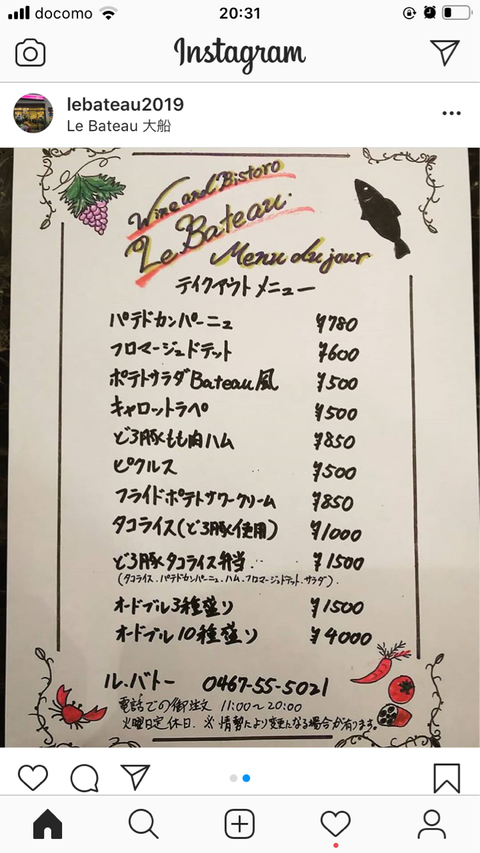 docomo 20:31
Instagram
lebateau2019
Le Bateau 大船
Wine and Bistoro
Le Bateau.
Menu du jour
テイクアウトメニュー
パテドカンパーニュ ¥780
フロマージュドテット ¥600
ポテトサラダBateau風 ¥500
キャロットラペ ¥500
どろ豚もも肉ハム ¥850
ピクルス ¥500
フライドポテトサワークリーム ¥850
タコライス(どろ豚使用) ¥1000
どろ豚タコライス弁当 ¥1500
(タコライス.パテドカンパーニュ.ハム.フロマージュドテット.サラダ).
オードブル3種盛り ¥1500
オードブル10種盛り ¥4000
ル.バトー 0467-55-5021
電話での御注文 11:00~20:00
火曜日定休日. ※情勢により変更になる場合が有ります。